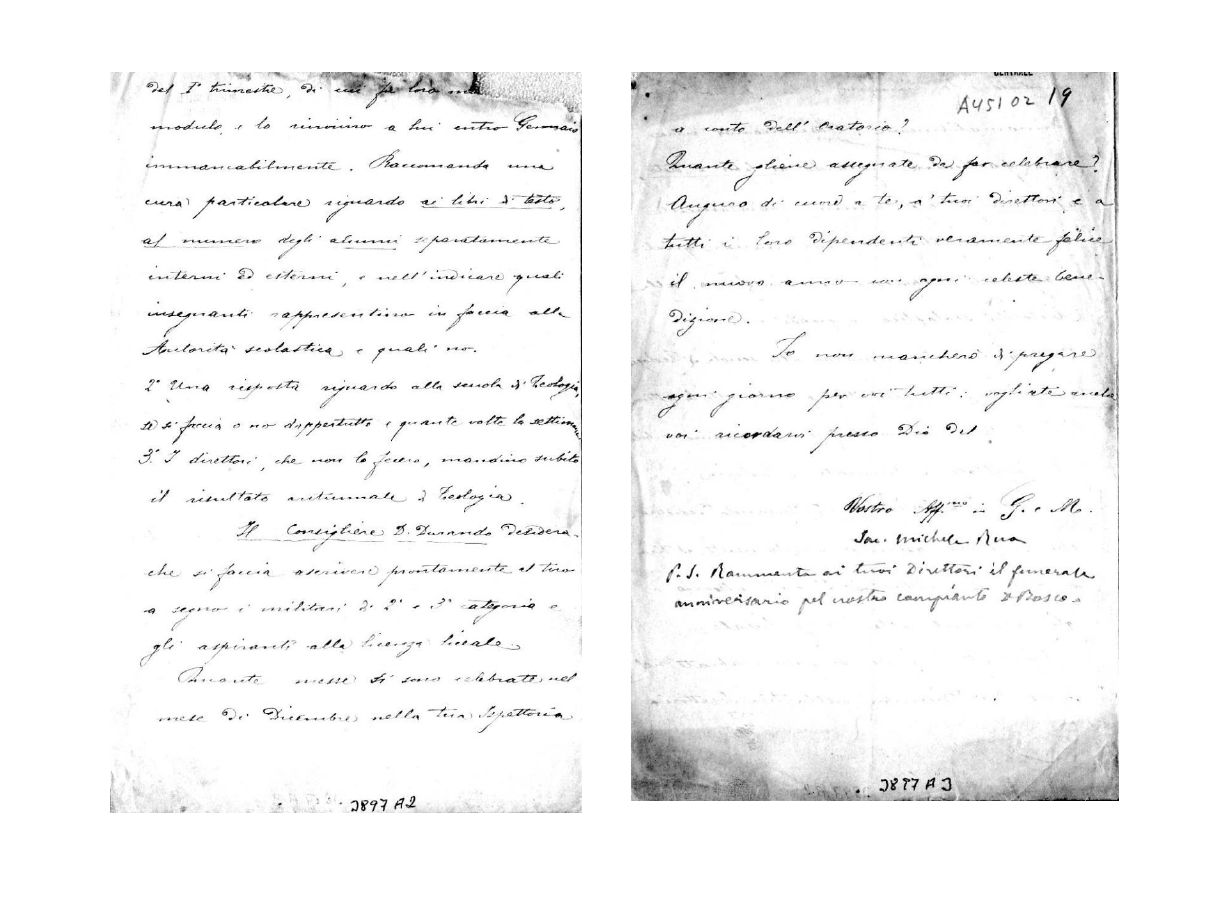 del I° trimestre, di cui fa loro
modulo, e lo rinviino a lui entro Gennaio
immancabilmente. Raccomanda una
cura particolare riguardo ai libri di testo,
al numero degli alunni separatamente
interni ed esterni, e nell'indicare quali
insegnanti rappresentino in faccia alle
Autorità scolastica e quali no.
2° Una risposta riguardo alla scuola di Teologia,
se si faccia o no dappertutto e quante volte la settimana
3° I direttori, che non lo fecero, mandino subito
il risultato autunnale di Teologia.
Il Consigliere D. Durando desidera
che si faccia ascrivere prontamente al tiro
a segno i militari di 2ª e 3ª categoria e
gli aspiranti alla licenza liceale.
Quante messe si sono celebrate nel
mese di Dicembre nella tua Ispettoria
J897 A2
CENTRALE
A451 02 19
a conto dell'Oratorio?
Quante gliene assegnate da far celebrare?
Auguro di cuore a te, a' tuoi direttori e a
tutti i loro dipendenti veramente felice
il nuovo anno con ogni celeste bene-
dizione.
Io non mancherò di pregare
ogni giorno per voi tutti: vogliate anche
voi ricordarvi presso Dio del
Vostro Aff.mo in G. e M.
Sac. Michele Rua
P.S. Rammenta ai tuoi Direttori il funerale
anniversario pel nostro compianto D Bosco.
J897 A3